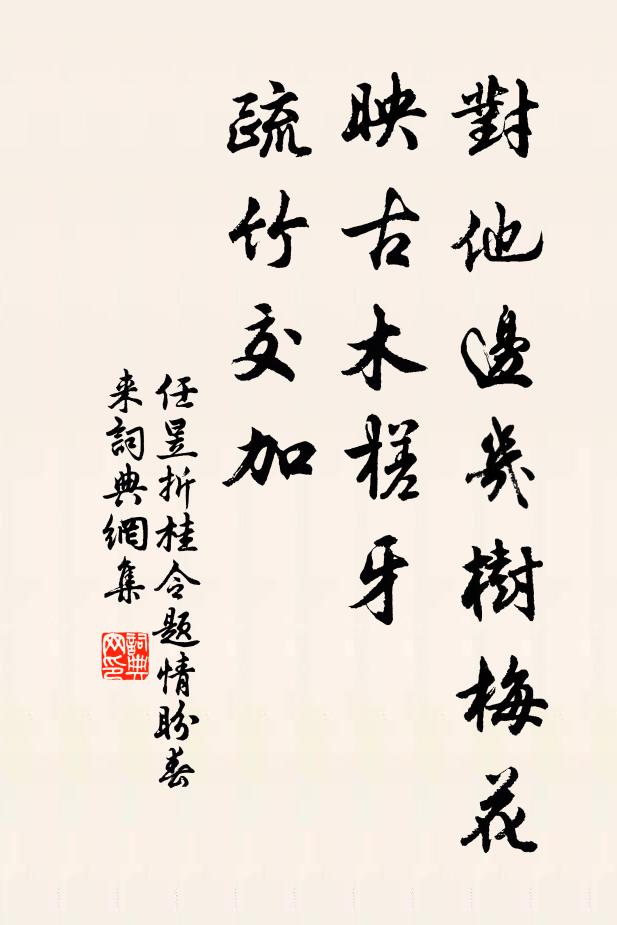 對他邊幾樹梅花
映古木槎牙
疏竹交加
任昱折桂令題情盼春
来詞典網集
詞典
网印